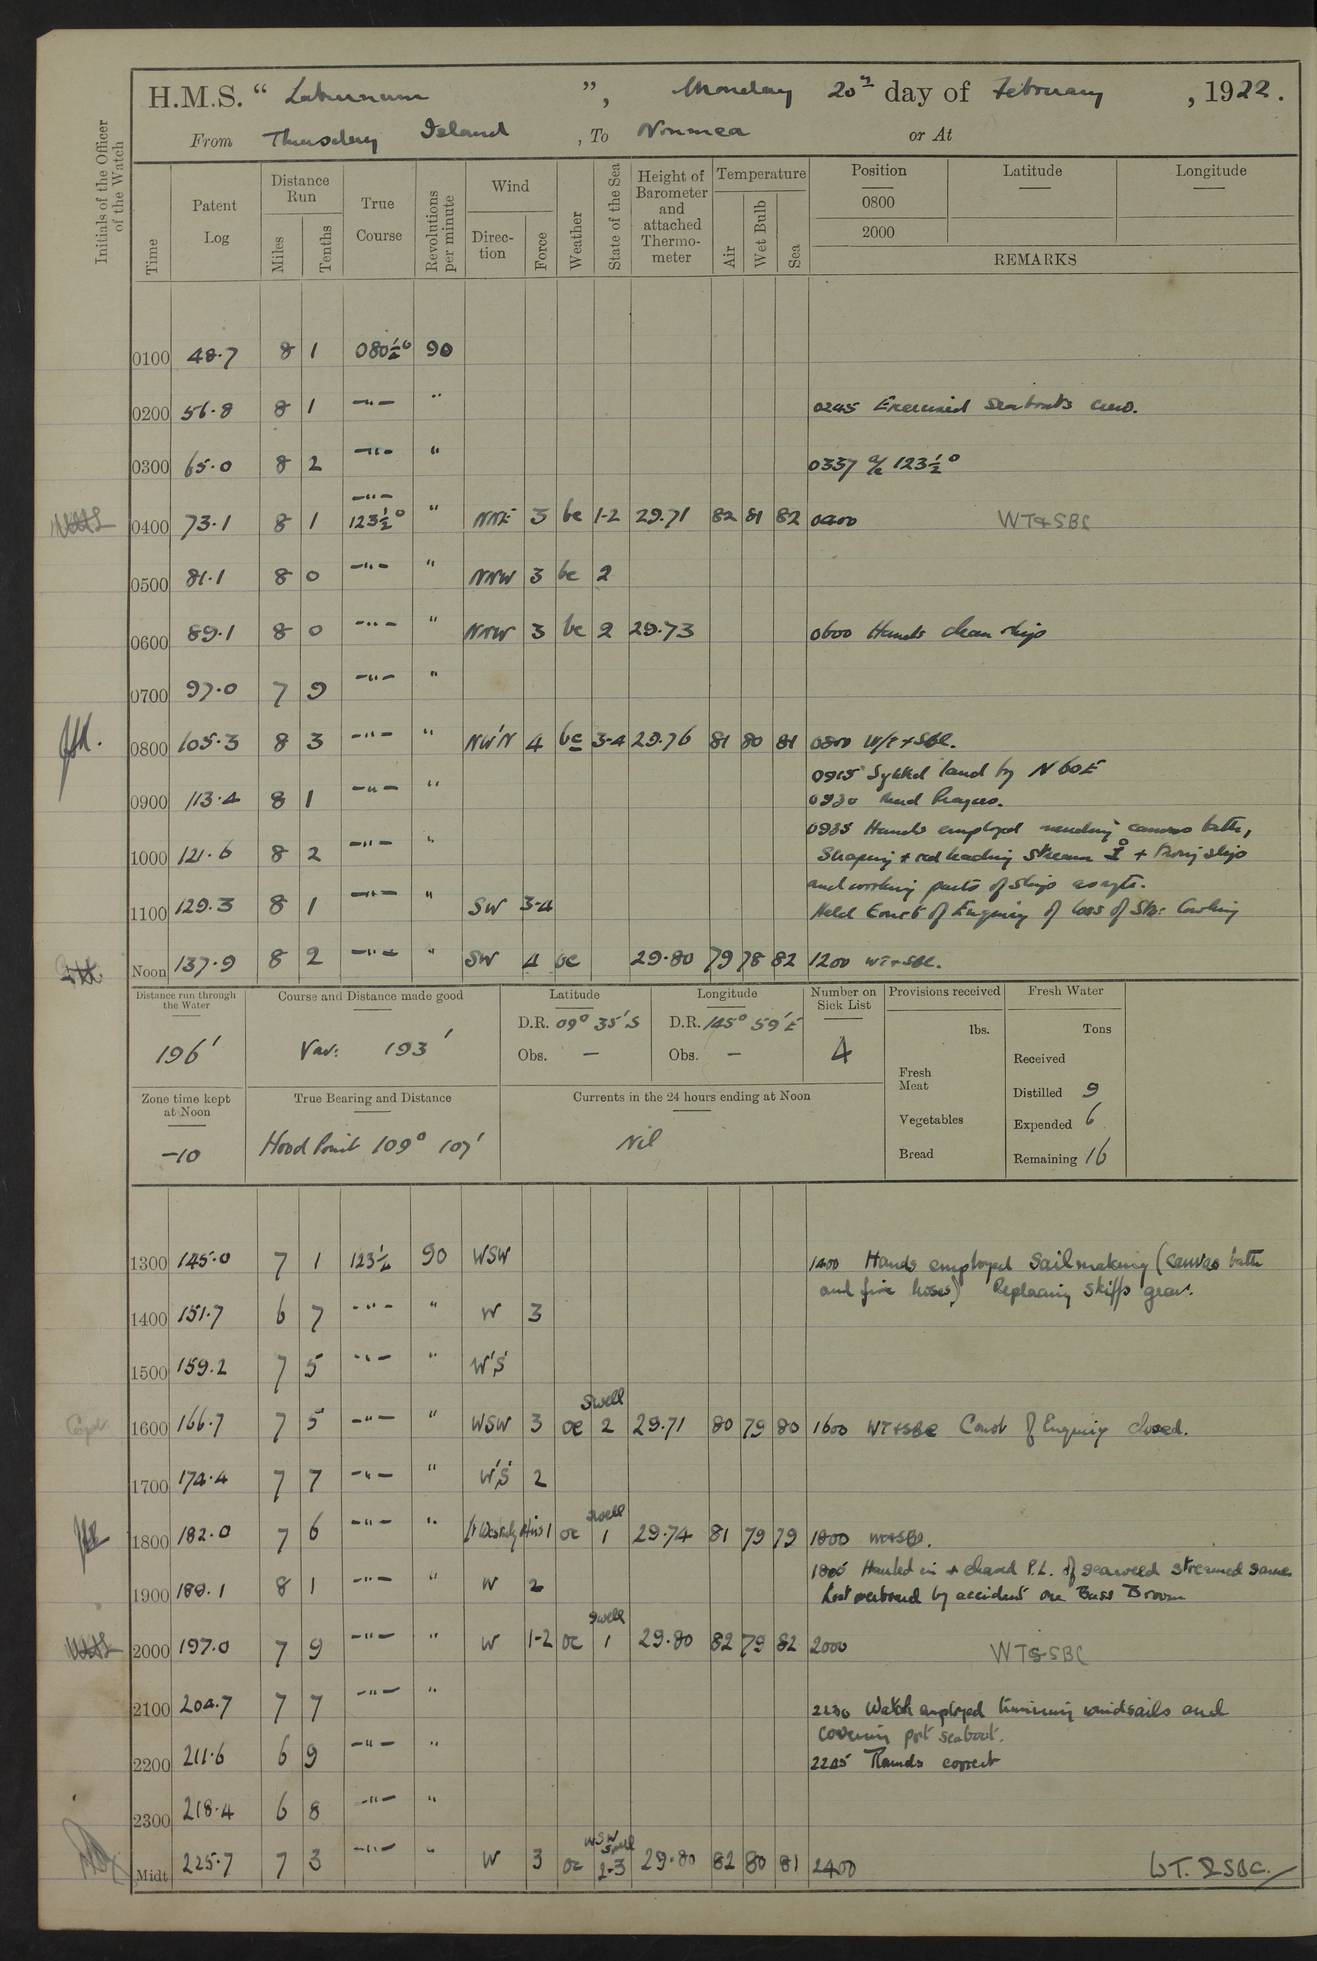 H.M.S. “ Laburnum ”, Monday 20th day of February , 1922.
From Thursday Island , To Noumea or At
Initials of the Officer of the Watch
Time Patent Log Distance Run Miles Tenths True Course Revolutions per minute Wind Direction Force Weather State of the Sea Height of Barometer and attached Thermometer Temperature Air Wet Bulb Sea Position 0800 2000 Latitude Longitude
REMARKS
0100 48.7 8 1 080½° 90
0200 56.8 8 1 —"— " 0245 Exercised Seaboats crew.
0300 65.0 8 2 —"— " 0337 a/c 123½°
—"—
0400 73.1 8 1 123½° " NNE 3 bc 1-2 29.71 82 81 82 0400 WT&SBC
0500 81.1 8 0 —"— " NNW 3 bc 2
0600 89.1 8 0 —"— " NNW 3 bc 2 29.73 0600 Hands clean ship
0700 97.0 7 9 —"— "
0800 105.3 8 3 —"— " NW'N 4 bc 3-4 29.76 81 80 81 0800 W/T + SBC.
0915 Sighted land by N60E
0900 113.4 8 1 —"— " 0930 Read Prayers.
0935 Hands employed mending canvas bath,
1000 121.6 8 2 —"— " Scraping + red leading stream +
and working parts of ship
1100 129.3 8 1 —"— " SW 3-4 Held Court of Enquiry of loss of
Noon 137.9 8 2 —"— " SW 4 oc 29.80 79 78 82 1200 WT+SBC.
Distance run through the Water 196'
Course and Distance made good Var: 193'
Latitude D.R. 09° 35'S Obs. —
Longitude D.R. 145° 59'E Obs. —
Number on Sick List 4
Provisions received lbs. Fresh Meat Vegetables Bread
Fresh Water Tons Received Distilled 9 Expended 6 Remaining 16
Zone time kept at Noon -10
True Bearing and Distance Hood Point 109° 107'
Currents in the 24 hours ending at Noon Nil
1300 145.0 7 1 123½ 90 WSW 1400 Hands employed Sailmaking (canvas bath
and fire hoses) Replacing skiffs gear.
1400 151.7 6 7 —"— " W 3
1500 159.2 7 5 —"— " W'S
Swell
1600 166.7 7 5 —"— " WSW 3 oc 2 29.71 80 79 80 1600 WT+SBC Court of Enquiry closed.
1700 174.4 7 7 —"— " W'S 2
swell
1800 182.0 7 6 —"— " Lt Westerly Airs 1 oc 1 29.74 81 79 79 1800 WT+SBC.
Hauled in + cleared P.L. of seaweed streamed same
1900 189.1 8 1 —"— " W 2 Lost overboard by accident one Bass Broom
swell
2000 197.0 7 9 —"— " W 1-2 oc 1 29.80 82 79 82 2000 WT&SBC
2100 204.7 7 7 —"— " Watch employed trimming windsails and
covering port seaboat.
2200 211.6 6 9 —"— " 2245 Rounds correct
2300 218.4 6 8 —"— "
WSW Swell
Midt 225.7 7 3 —"— " W 3 oc 2-3 29.80 82 80 81 2400 WT. & SBC.